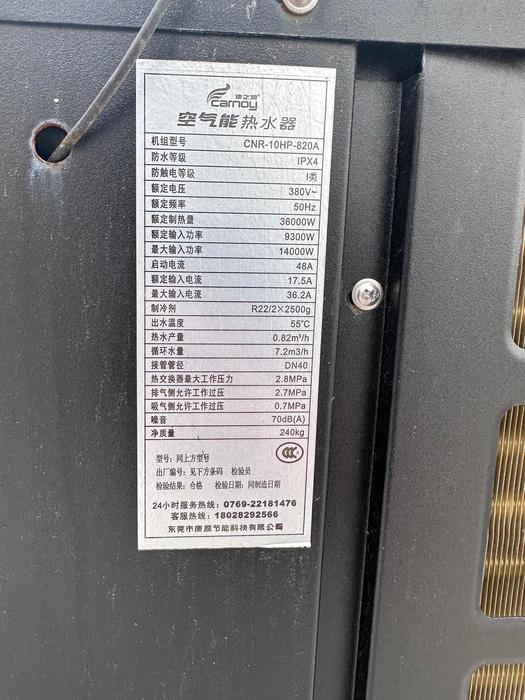 康之源
carnoy
空气能热水器
机组型号 CNR-10HP-820A
防水等级 IPX4
防触电等级 I类
额定电压 380V~
额定频率 50Hz
额定制热量 36000W
额定输入功率 9300W
最大输入功率 14000W
启动电流 48A
额定输入电流 17.5A
最大输入电流 36.2A
制冷剂 R22/2×2500g
出水温度 55℃
热水产量 0.82m³/h
循环水量 7.2m3/h
接管管径 DN40
热交换器最大工作压力 2.8MPa
排气侧允许工作过压 2.7MPa
吸气侧允许工作过压 0.7MPa
噪音 70dB(A)
净质量 240kg
型号：同上方型号
出厂编号：见下方条码 检验员
检验结果：合格 检验日期：同制造日期
24小时服务热线：0769-22181476
客服热线：18028292566
东莞市康源节能科技有限公司